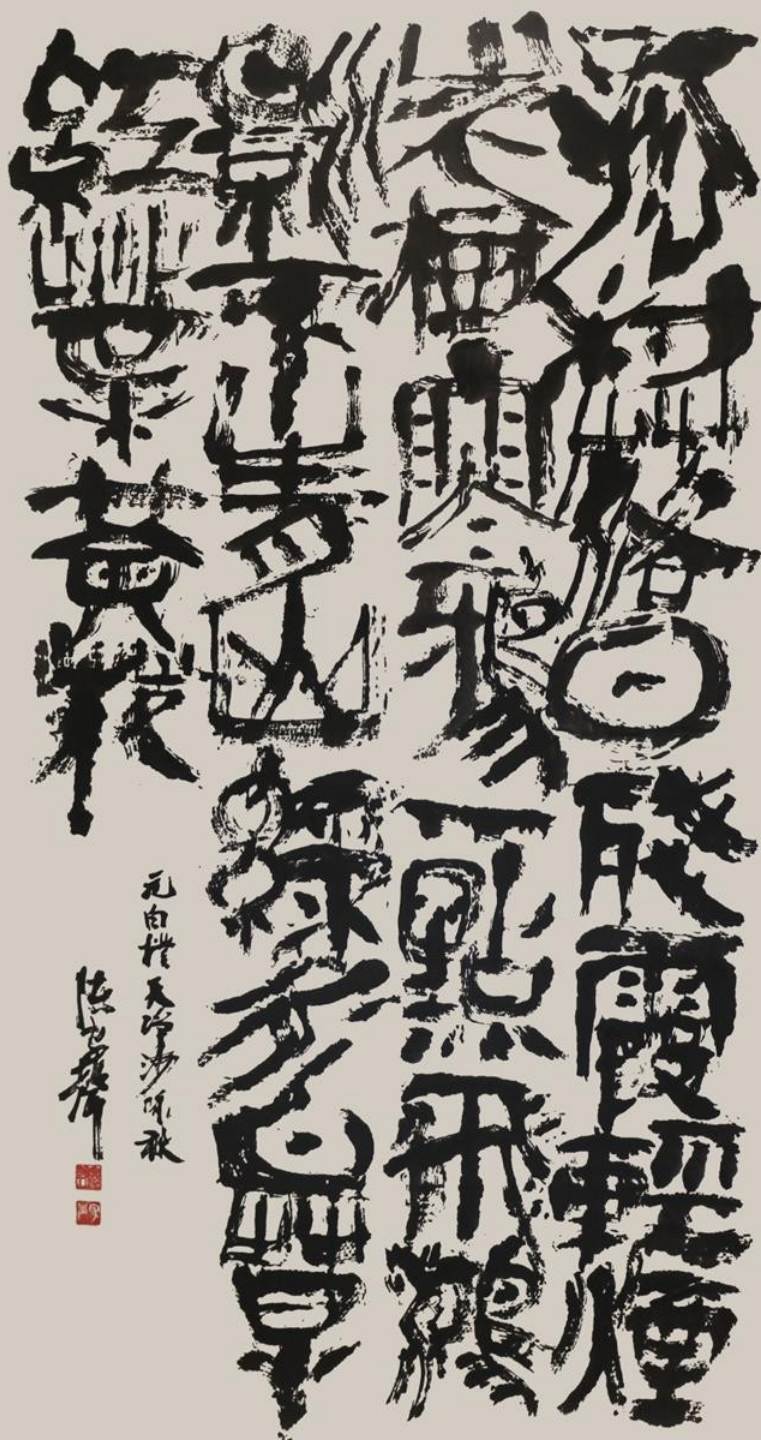 孤村落日殘霞輕煙
老樹寒鴉一點飛鴻
影下青山綠水白草
紅葉黃花
元白樸天淨沙咏秋